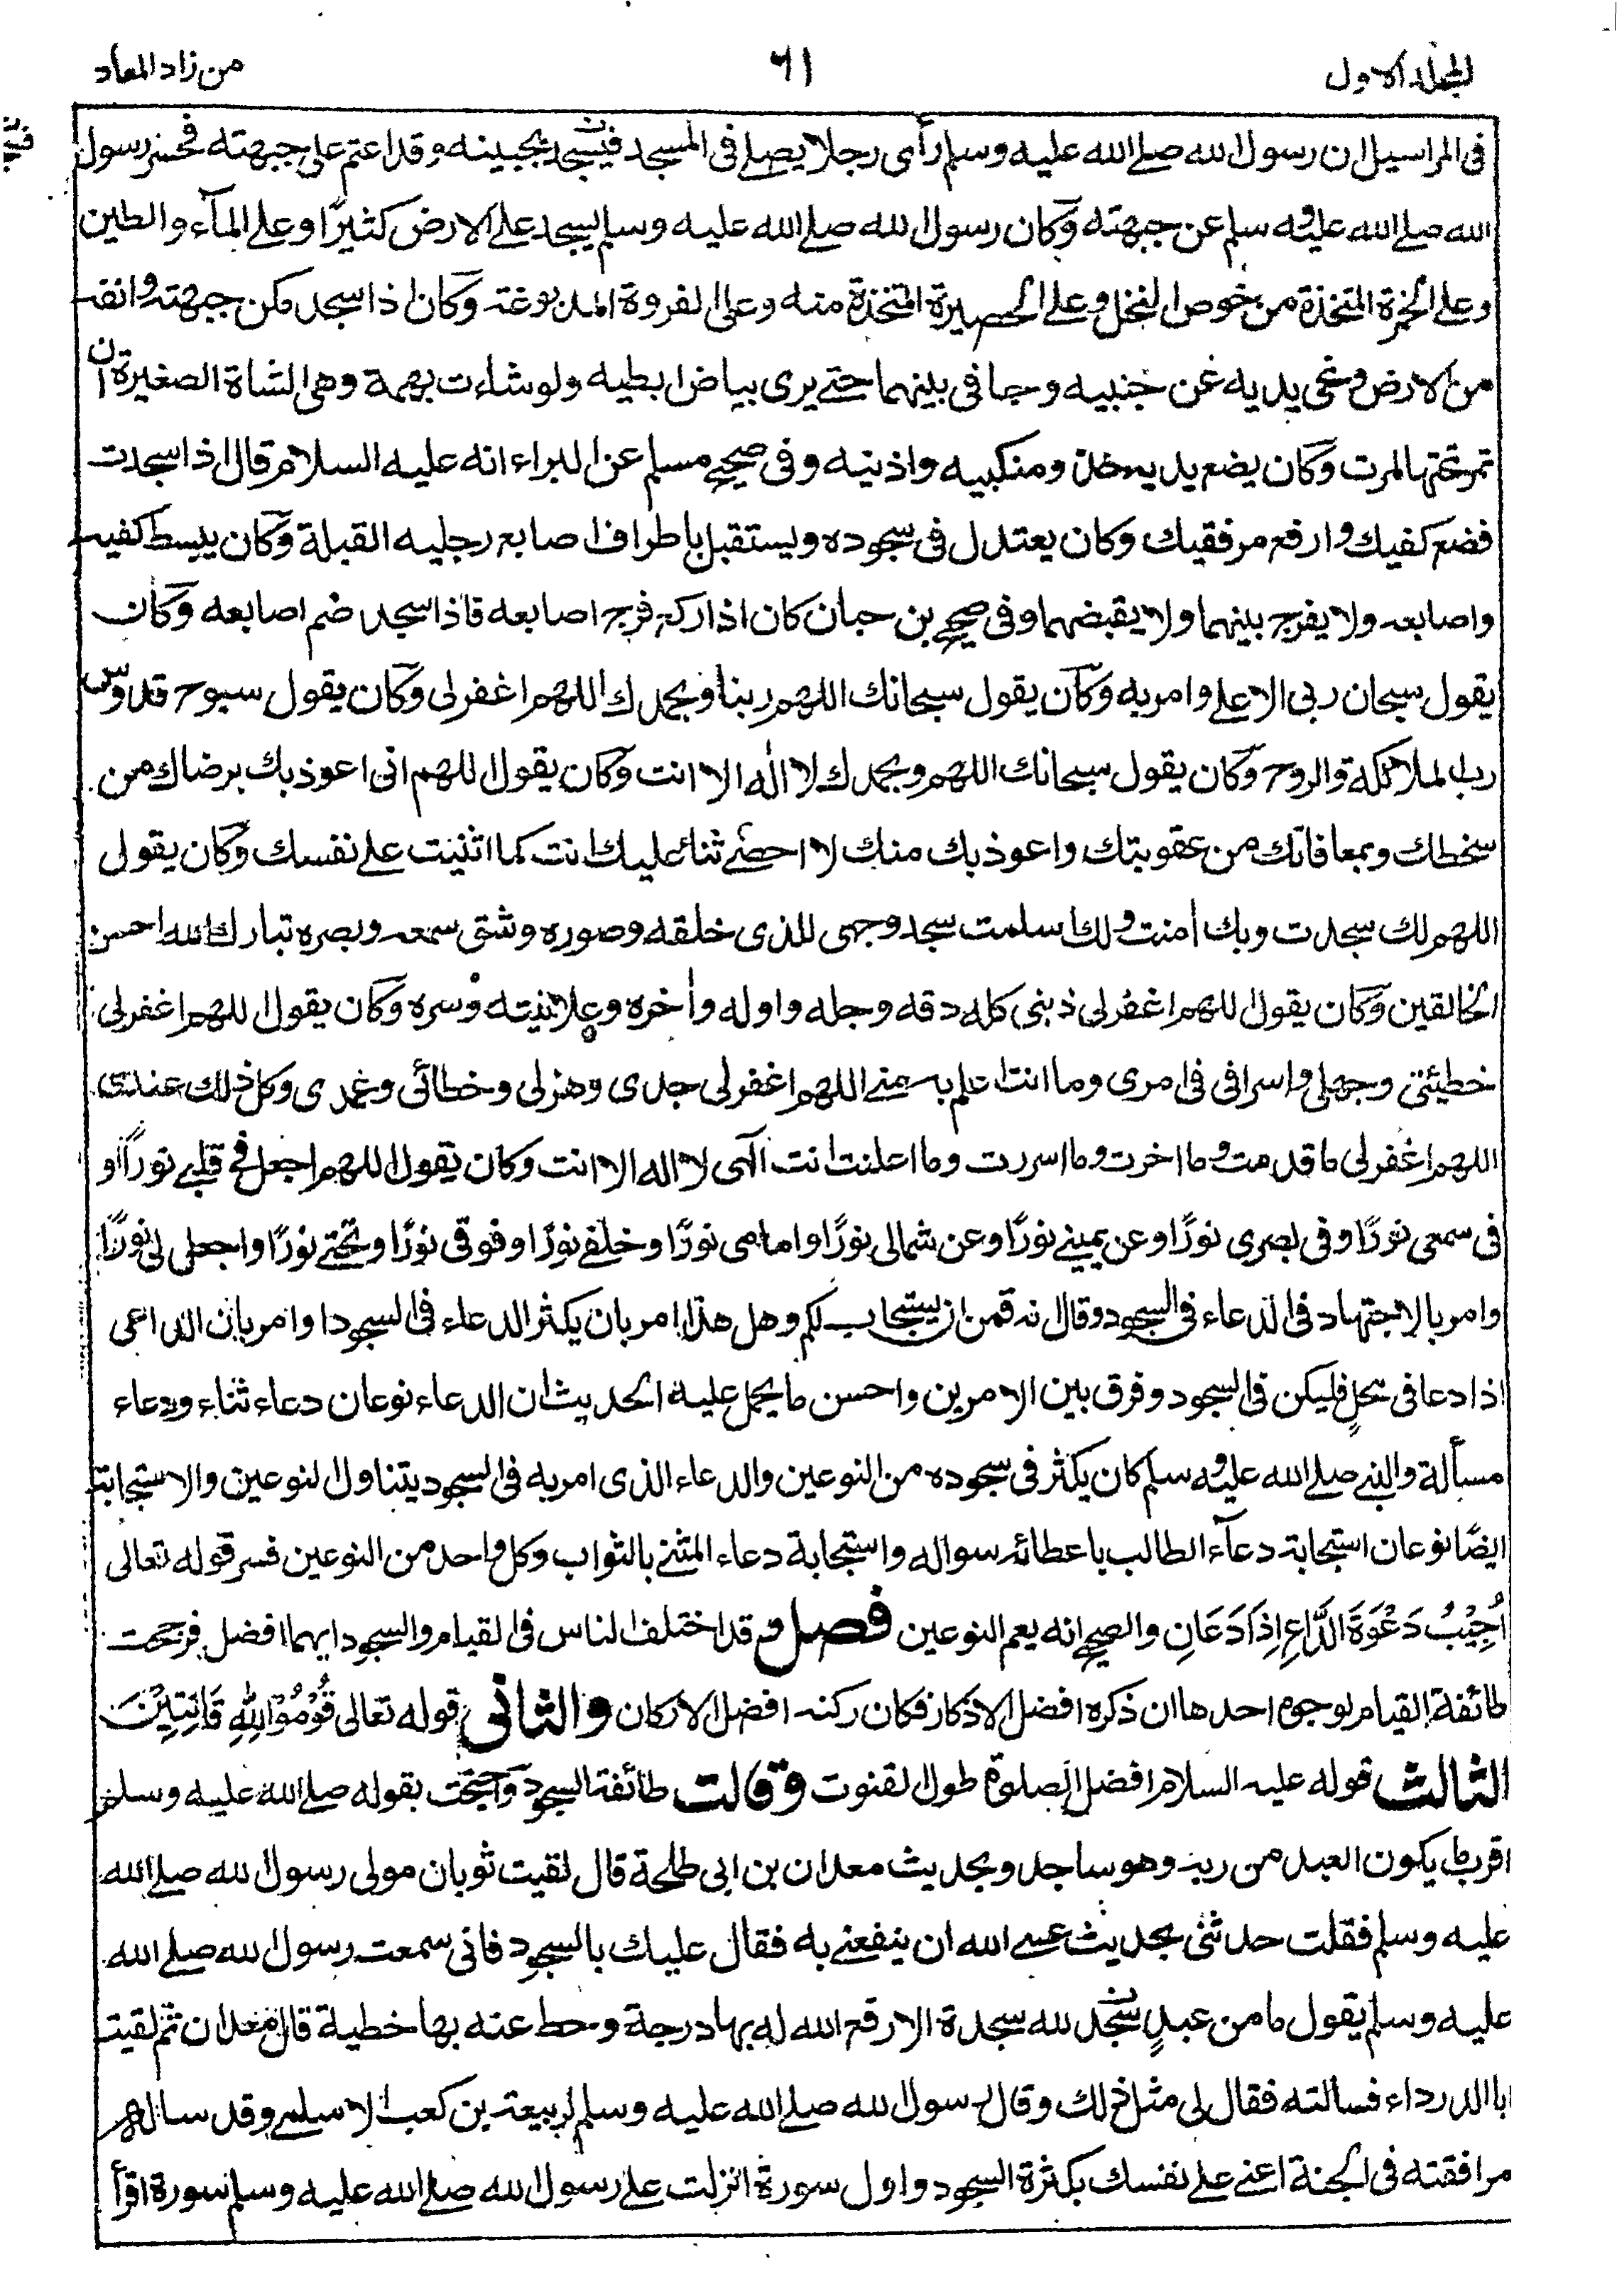 المجلد الاول
٦١
من زاد المعاد
فى المراسيل ان رسول الله صلے الله عليه وسلم رأى رجلا يصلے فى المسجد فيسجد بجبينه وقد اعتم على جبهته فحسر رسول
الله صلے الله عليه وسلم عن جبهته وكان رسول لله صلے الله عليه وسلم يسجد علے الارض كثيرًا وعلے المآء والطين
وعلے الخمرة المتخذة من خوص النخل وعلے الحصيرة المتخذة منه وعلى الفروة المدبوغة وكان اذا سجد مكن جبهته وانفه
من الارض ونحى يديه عن جنبيه وجافى بينهما حتے يرى بياض ابطيه ولو شاءت بهمة وهى الشاة الصغيرة ان
تمر تحتهما لمرت وكان يضع يديه حذو منكبيه واذنيه وفى صحيح مسلم عن البراء انه عليه السلام قال اذا سجدت
فضع كفيك وارفع مرفقيك وكان يعتدل فى سجوده ويستقبل باطراف اصابع رجليه القبلة وكان يبسط كفيه
واصابعه ولا يفرج بينهما ولا يقبضهما وفى صحيح بن حبان كان اذا ركع فرج اصابعه فاذا سجد ضم اصابعه وكان
يقول سبحان ربى الاعلے وامر به وكان يقول سبحانك اللهم ربنا وبحمدك اللهم اغفرلى وكان يقول سبوح قدوس
رب الملائكة والروح وكان يقول سبحانك اللهم وبحمدك لا اله الا انت وكان يقول اللهم انى اعوذ بك برضاك من
سخطك وبمعافاتك من عقوبتك واعوذ بك منك لا احصے ثناء عليك انت كما اثنيت علے نفسك وكان يقول
اللهم لك سجدت وبك اٰمنت ولك اسلمت سجد وجهى للذى خلقه وصوره وشق سمعه وبصره تبارك الله احسن
الخالقين وكان يقول اللهم اغفرلى ذنبى كله دقه وجله واوله واٰخره وعلانيته وسره وكان يقول اللهم اغفرلى
خطيئتى وجهلى واسرافى فى امرى وما انت اعلم به منے اللهم اغفرلى جدى وهزلى وخطائى وعمدى وكل ذلك عندى
اللهم اغفرلى ما قدمت وما اخرت وما اسررت وما اعلنت انت آلهى لا اله الا انت وكان يقول اللهم اجعل فى قلبے نورًا و
فى سمعى نورًا وفى بصرى نورًا وعن يمينے نورًا وعن شمالى نورًا وامامى نورًا وخلفے نورًا وفوقى نورًا وتحتے نورًا واجعلى لى نورًا
وامر بالاجتهاد فى الدعاء فى السجود وقال نه قمن ان يستجاب لكم وهل هذا امر بان يكثر الدعاء فى السجود ا وامر بان الداعى
اذا دعا فى محلٍ فليكن فى السجود وفرق بين الامرين واحسن ما يحمل عليه الحديث ان الدعاء نوعان دعاء ثناء ودعاء
مسألة والنبے صلے الله عليه وسلم كان يكثر فى سجوده من النوعين والدعاء الذى امر به فى السجود يتناول النوعين والاستجابة
ايضًا نوعان استجابة دعآء الطالب باعطائه سواله واستجابة دعاء المثنے بالثواب وكل واحد من النوعين فسر قوله تعالى
اُجِيْبُ دَعْوَةَ الدَّاعِ اِذَا دَعَانِ والصحيح انه يعم النوعين فصل وقد اختلف الناس فى القيام والسجود ايهما افضل فرجحت
طائفة القيام لوجوه احدها ان ذكره افضل الاذكار فكان ركنه افضل الاركان والثانى قوله تعالى قُوْمُوْا لِلّٰهِ قَانِتِيْنَ
الثالث قوله عليه السلام افضل الصلوة طول القنوت وقالت طائفة السجود واحتجت بقوله صلے الله عليه وسلم
اقرب ما يكون العبد من ربه وهو ساجد وبحديث معدان بن ابى طلحة قال لقيت ثوبان مولى رسول لله صلے الله
عليه وسلم فقلت حدثنى بحديث عسے الله ان ينفعنے به فقال عليك بالسجود فانى سمعت رسول لله صلے الله
عليه وسلم يقول ما من عبدٍ يسجد لله سجدة الا رفع الله له بها درجة وحط عنه بها خطية قال معدان ثم لقيت
ابا الدرداء فسالته فقال لى مثل ذلك وقال رسول لله صلے الله عليه وسلم لربيعة بن كعب الاسلمے وقد ساله
مرافقته فى الجنة اعنے علے نفسك بكثرة السجود واول سورة انزلت علے رسول لله صلے الله عليه وسلم سورة اقرأ